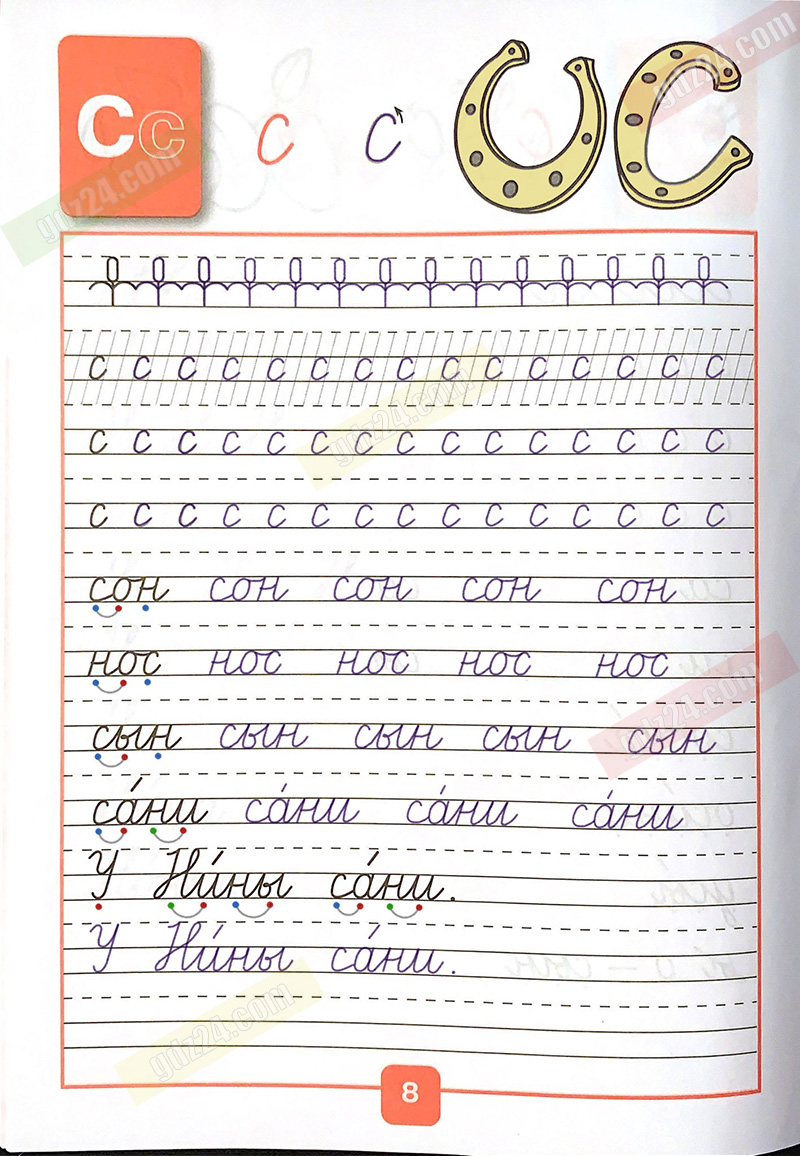 gdz24.com
Сс с с
gdz24.com
с с с с с с с с с с с с с с с
gdz24.com
с с с с с с с с с с с с с с с
с с с с с с с с с с с с с с с
сон сон сон сон сон
нос нос нос нос нос
gdz24.com
сын сын сын сын сын
са́ни са́ни са́ни са́ни
У Ни́ны са́ни.
У Ни́ны са́ни.
gdz24.com
8